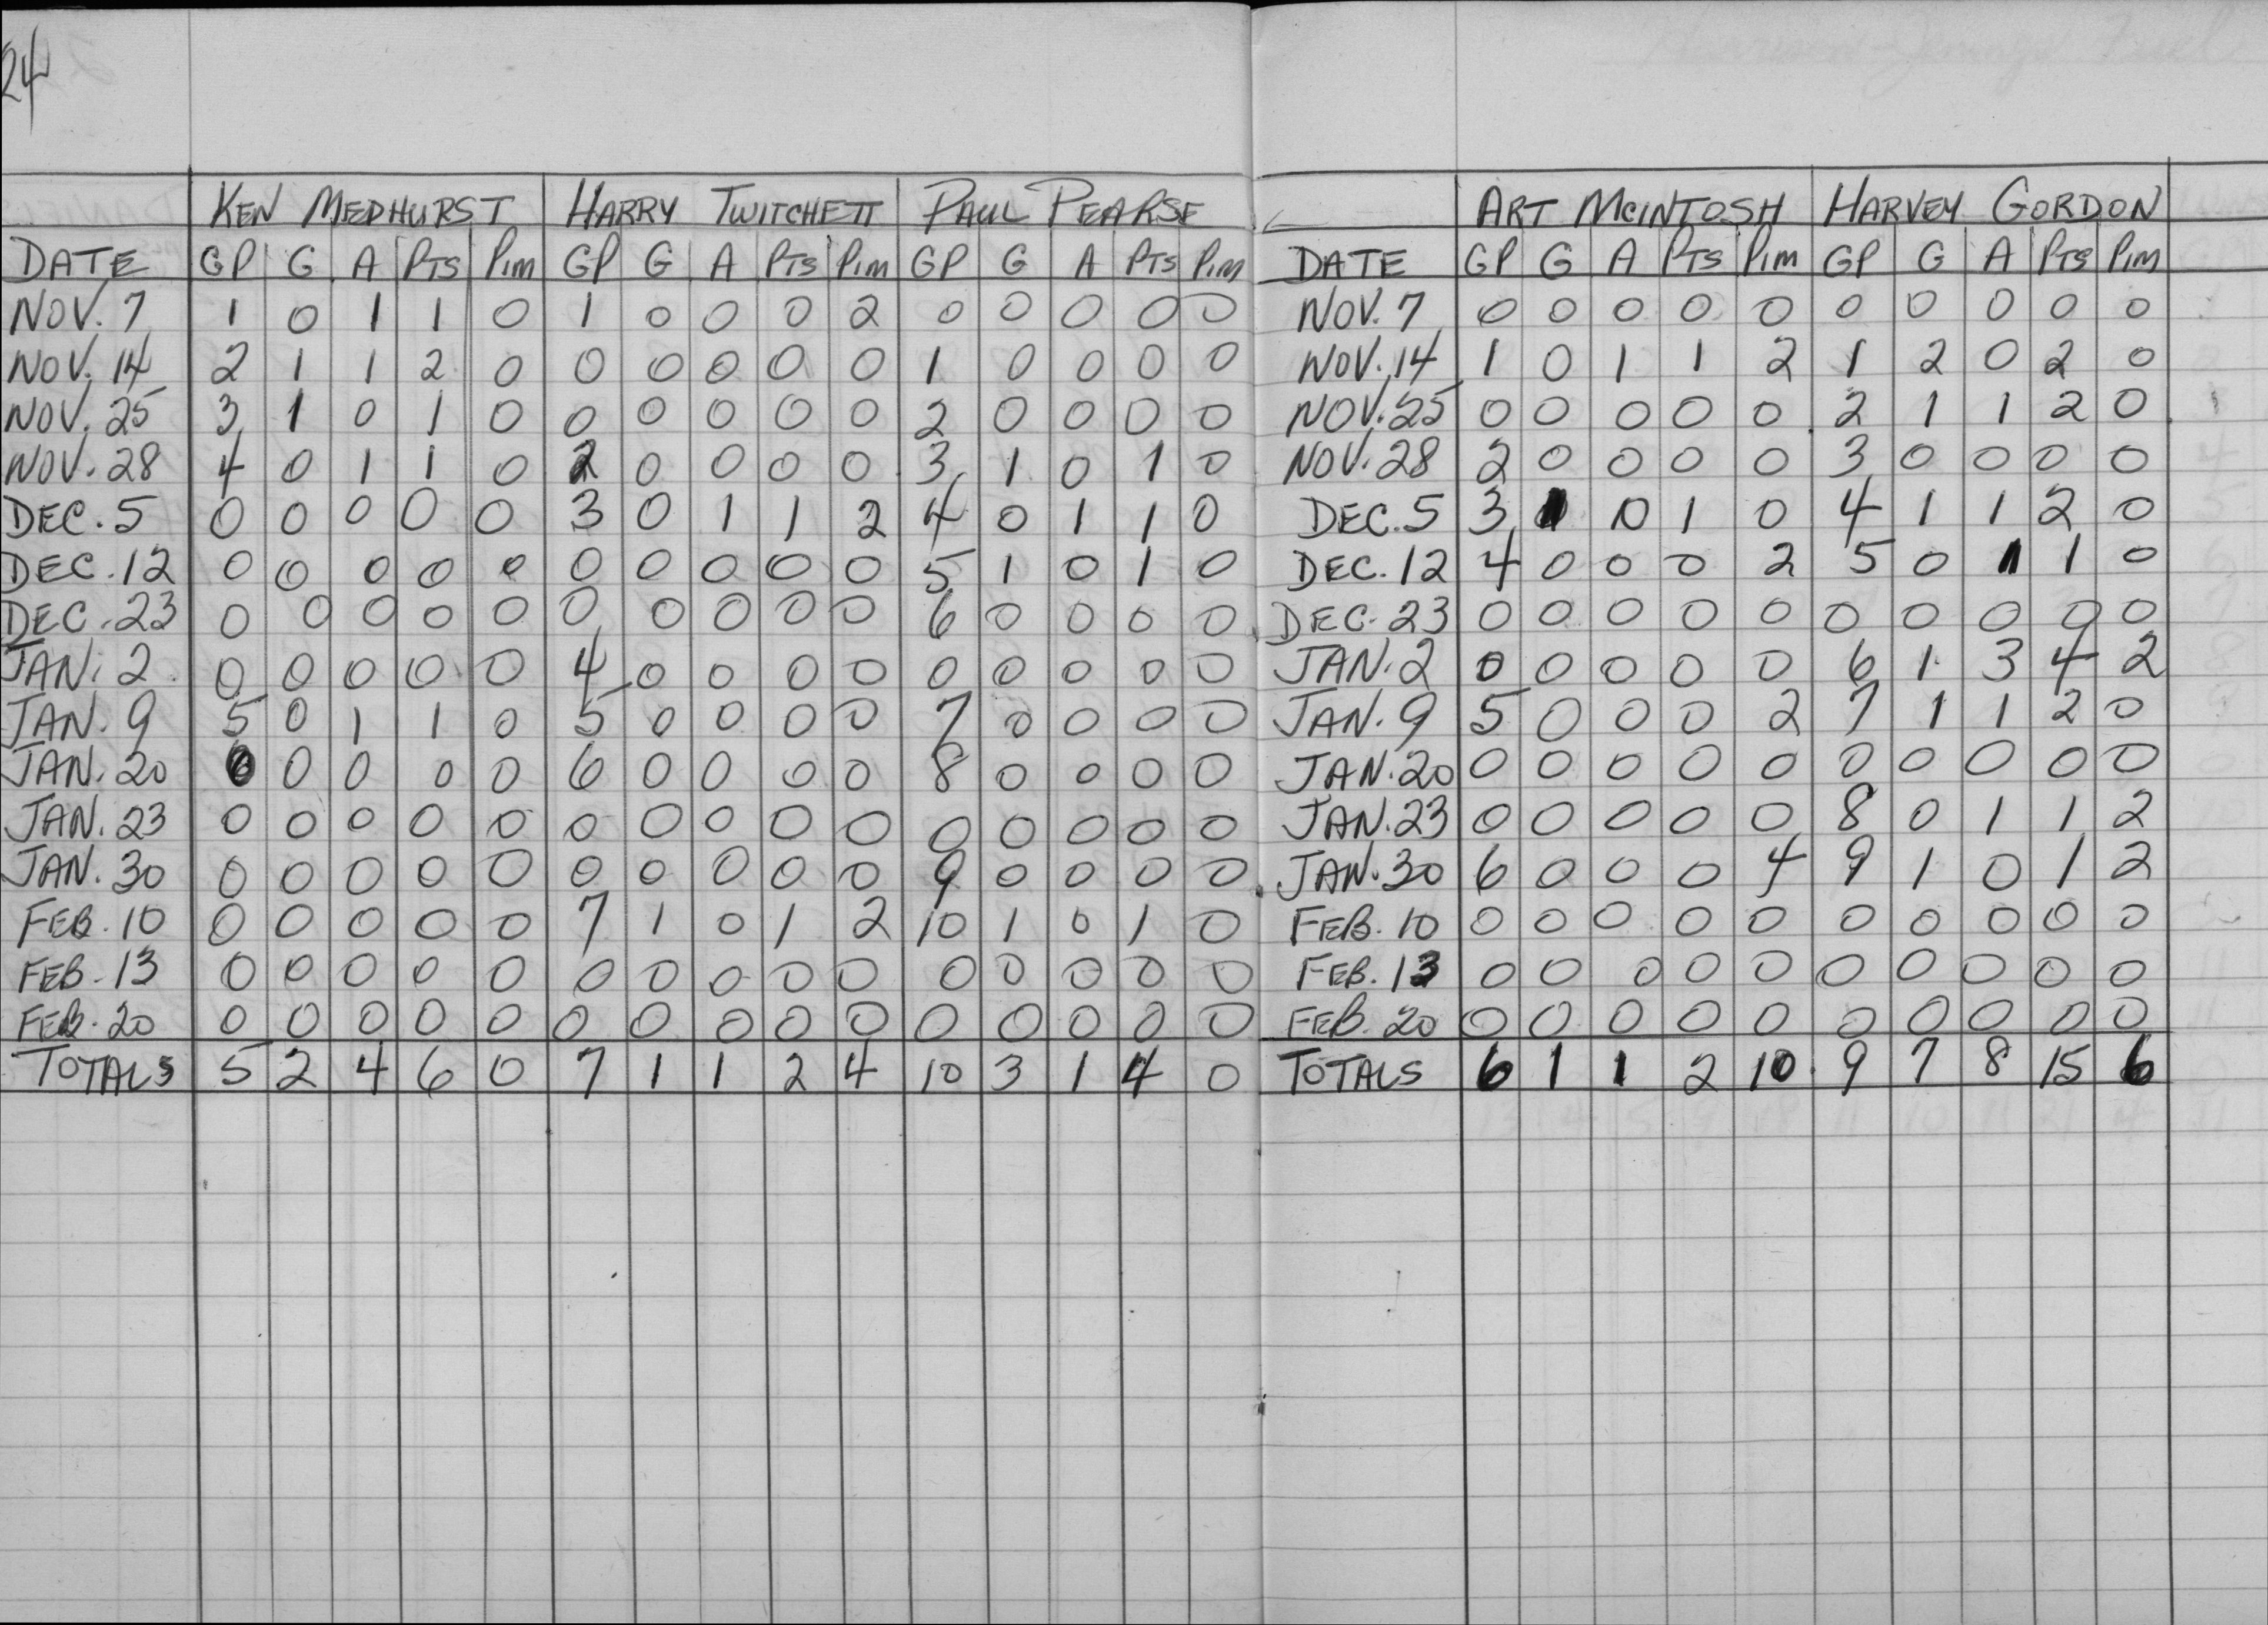 24
KEN MEDHURST HARRY TWITCHETT PAUL PEARSE ART MCINTOSH HARVEY GORDON
DATE GP G A PTS PIM GP G A PTS PIM GP G A PTS PIM DATE GP G A PTS PIM GP G A PTS PIM
NOV. 7 1 0 1 1 0 1 0 0 0 2 0 0 0 0 0 NOV. 7 0 0 0 0 0 0 0 0 0 0
NOV. 14 2 1 1 2 0 0 0 0 0 0 1 0 0 0 0 NOV. 14 1 0 1 1 2 1 2 0 2 0
NOV. 25 3 1 0 1 0 0 0 0 0 0 2 0 0 0 0 NOV. 25 0 0 0 0 0 2 1 1 2 0
NOV. 28 4 0 1 1 0 2 0 0 0 0 3 1 0 1 0 NOV. 28 2 0 0 0 0 3 0 0 0 0
DEC. 5 0 0 0 0 0 3 0 1 1 2 4 0 1 1 0 DEC. 5 3 1 0 1 0 4 1 1 2 0
DEC. 12 0 0 0 0 0 0 0 0 0 0 5 1 0 1 0 DEC. 12 4 0 0 0 2 5 0 1 1 0
DEC. 23 0 0 0 0 0 0 0 0 0 0 6 0 0 0 0 DEC. 23 0 0 0 0 0 0 0 0 0 0
JAN. 2 0 0 0 0 0 4 0 0 0 0 0 0 0 0 0 JAN. 2 0 0 0 0 0 6 1 3 4 2
JAN. 9 5 0 1 1 0 5 0 0 0 0 7 0 0 0 0 JAN. 9 5 0 0 0 2 7 1 1 2 0
JAN. 20 0 0 0 0 0 6 0 0 0 0 8 0 0 0 0 JAN. 20 0 0 0 0 0 0 0 0 0 0
JAN. 23 0 0 0 0 0 0 0 0 0 0 0 0 0 0 0 JAN. 23 0 0 0 0 0 8 0 1 1 2
JAN. 30 0 0 0 0 0 0 0 0 0 0 9 0 0 0 0 JAN. 30 6 0 0 0 4 9 1 0 1 2
FEB. 10 0 0 0 0 0 7 1 0 1 2 10 1 0 1 0 FEB. 10 0 0 0 0 0 0 0 0 0 0
FEB. 13 0 0 0 0 0 0 0 0 0 0 0 0 0 0 0 FEB. 13 0 0 0 0 0 0 0 0 0 0
FEB. 20 0 0 0 0 0 0 0 0 0 0 0 0 0 0 0 FEB. 20 0 0 0 0 0 0 0 0 0 0
TOTALS 5 2 4 6 0 7 1 1 2 4 10 3 1 4 0 TOTALS 6 1 1 2 10 9 7 8 15 6